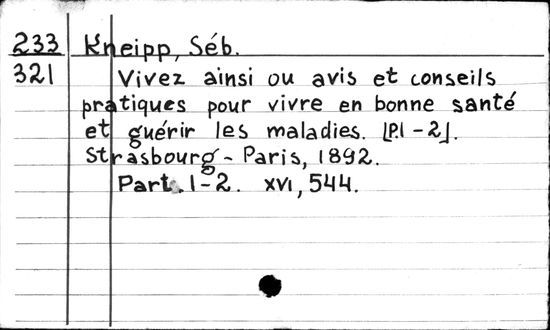 233 Kneipp, Séb.
321 Vivez ainsi ou avis et conseils
pratiques pour vivre en bonne santé
et guérir les maladies. [P.1-2].
Strasbourg - Paris, 1892.
Part. 1-2. XVI, 544.